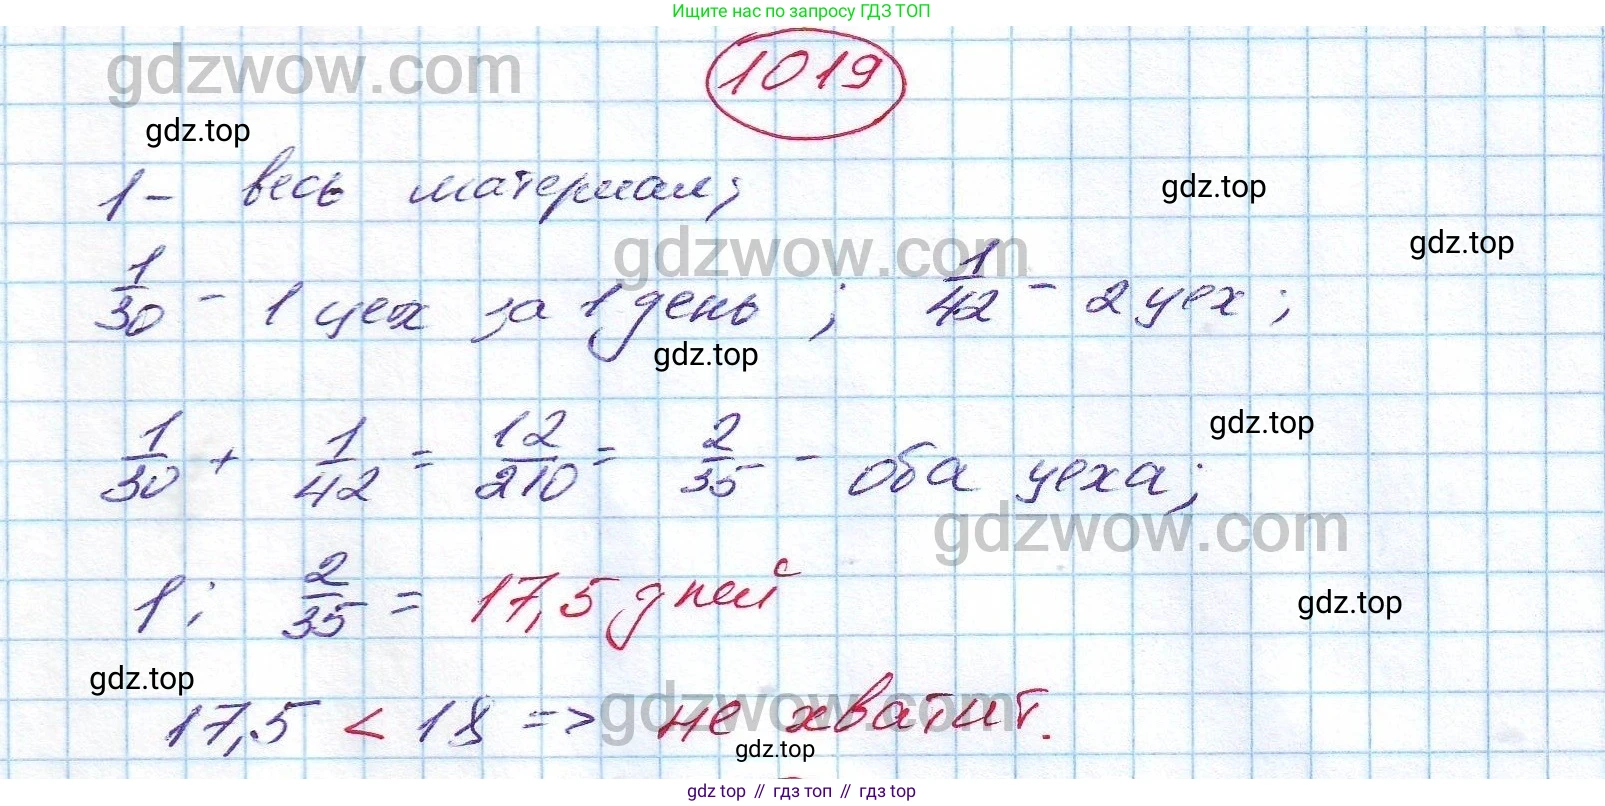 Ищите нас по запросу ГДЗ ТОП
gdzwow.com
1019
gdz.top
1 - весь материал;
gdz.top
gdzwow.com
gdz.top
1/30 - 1 цех за 1 день; 1/42 - 2 цех;
gdz.top
gdz.top
1/30 + 1/42 = 12/210 = 2/35 - оба цеха;
gdzwow.com
1 : 2/35 = 17,5 дней
gdz.top
gdz.top
gdzwow.com
17,5 < 18 => не хватит.
gdz.top
gdz top // гдз топ // гдз top